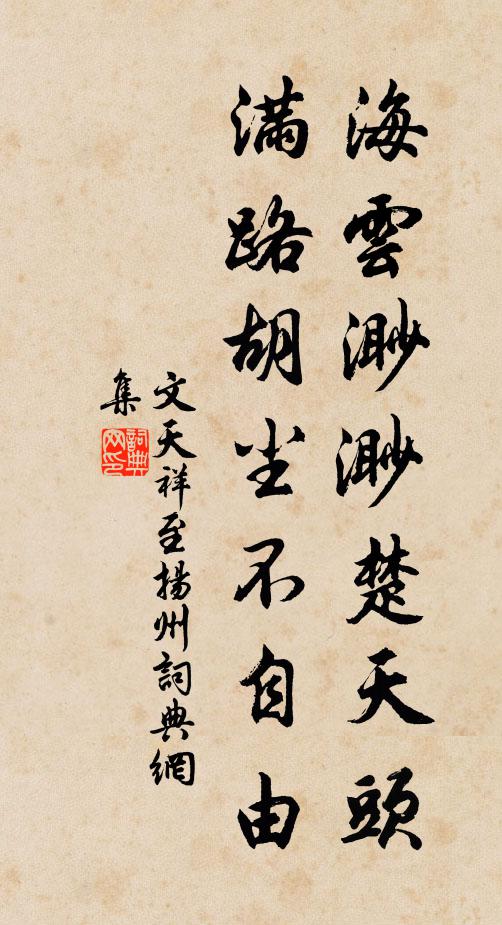 海雲渺渺楚天頭
滿路胡尘不自由
文天祥至揚州詞典網
集
詞典
网印